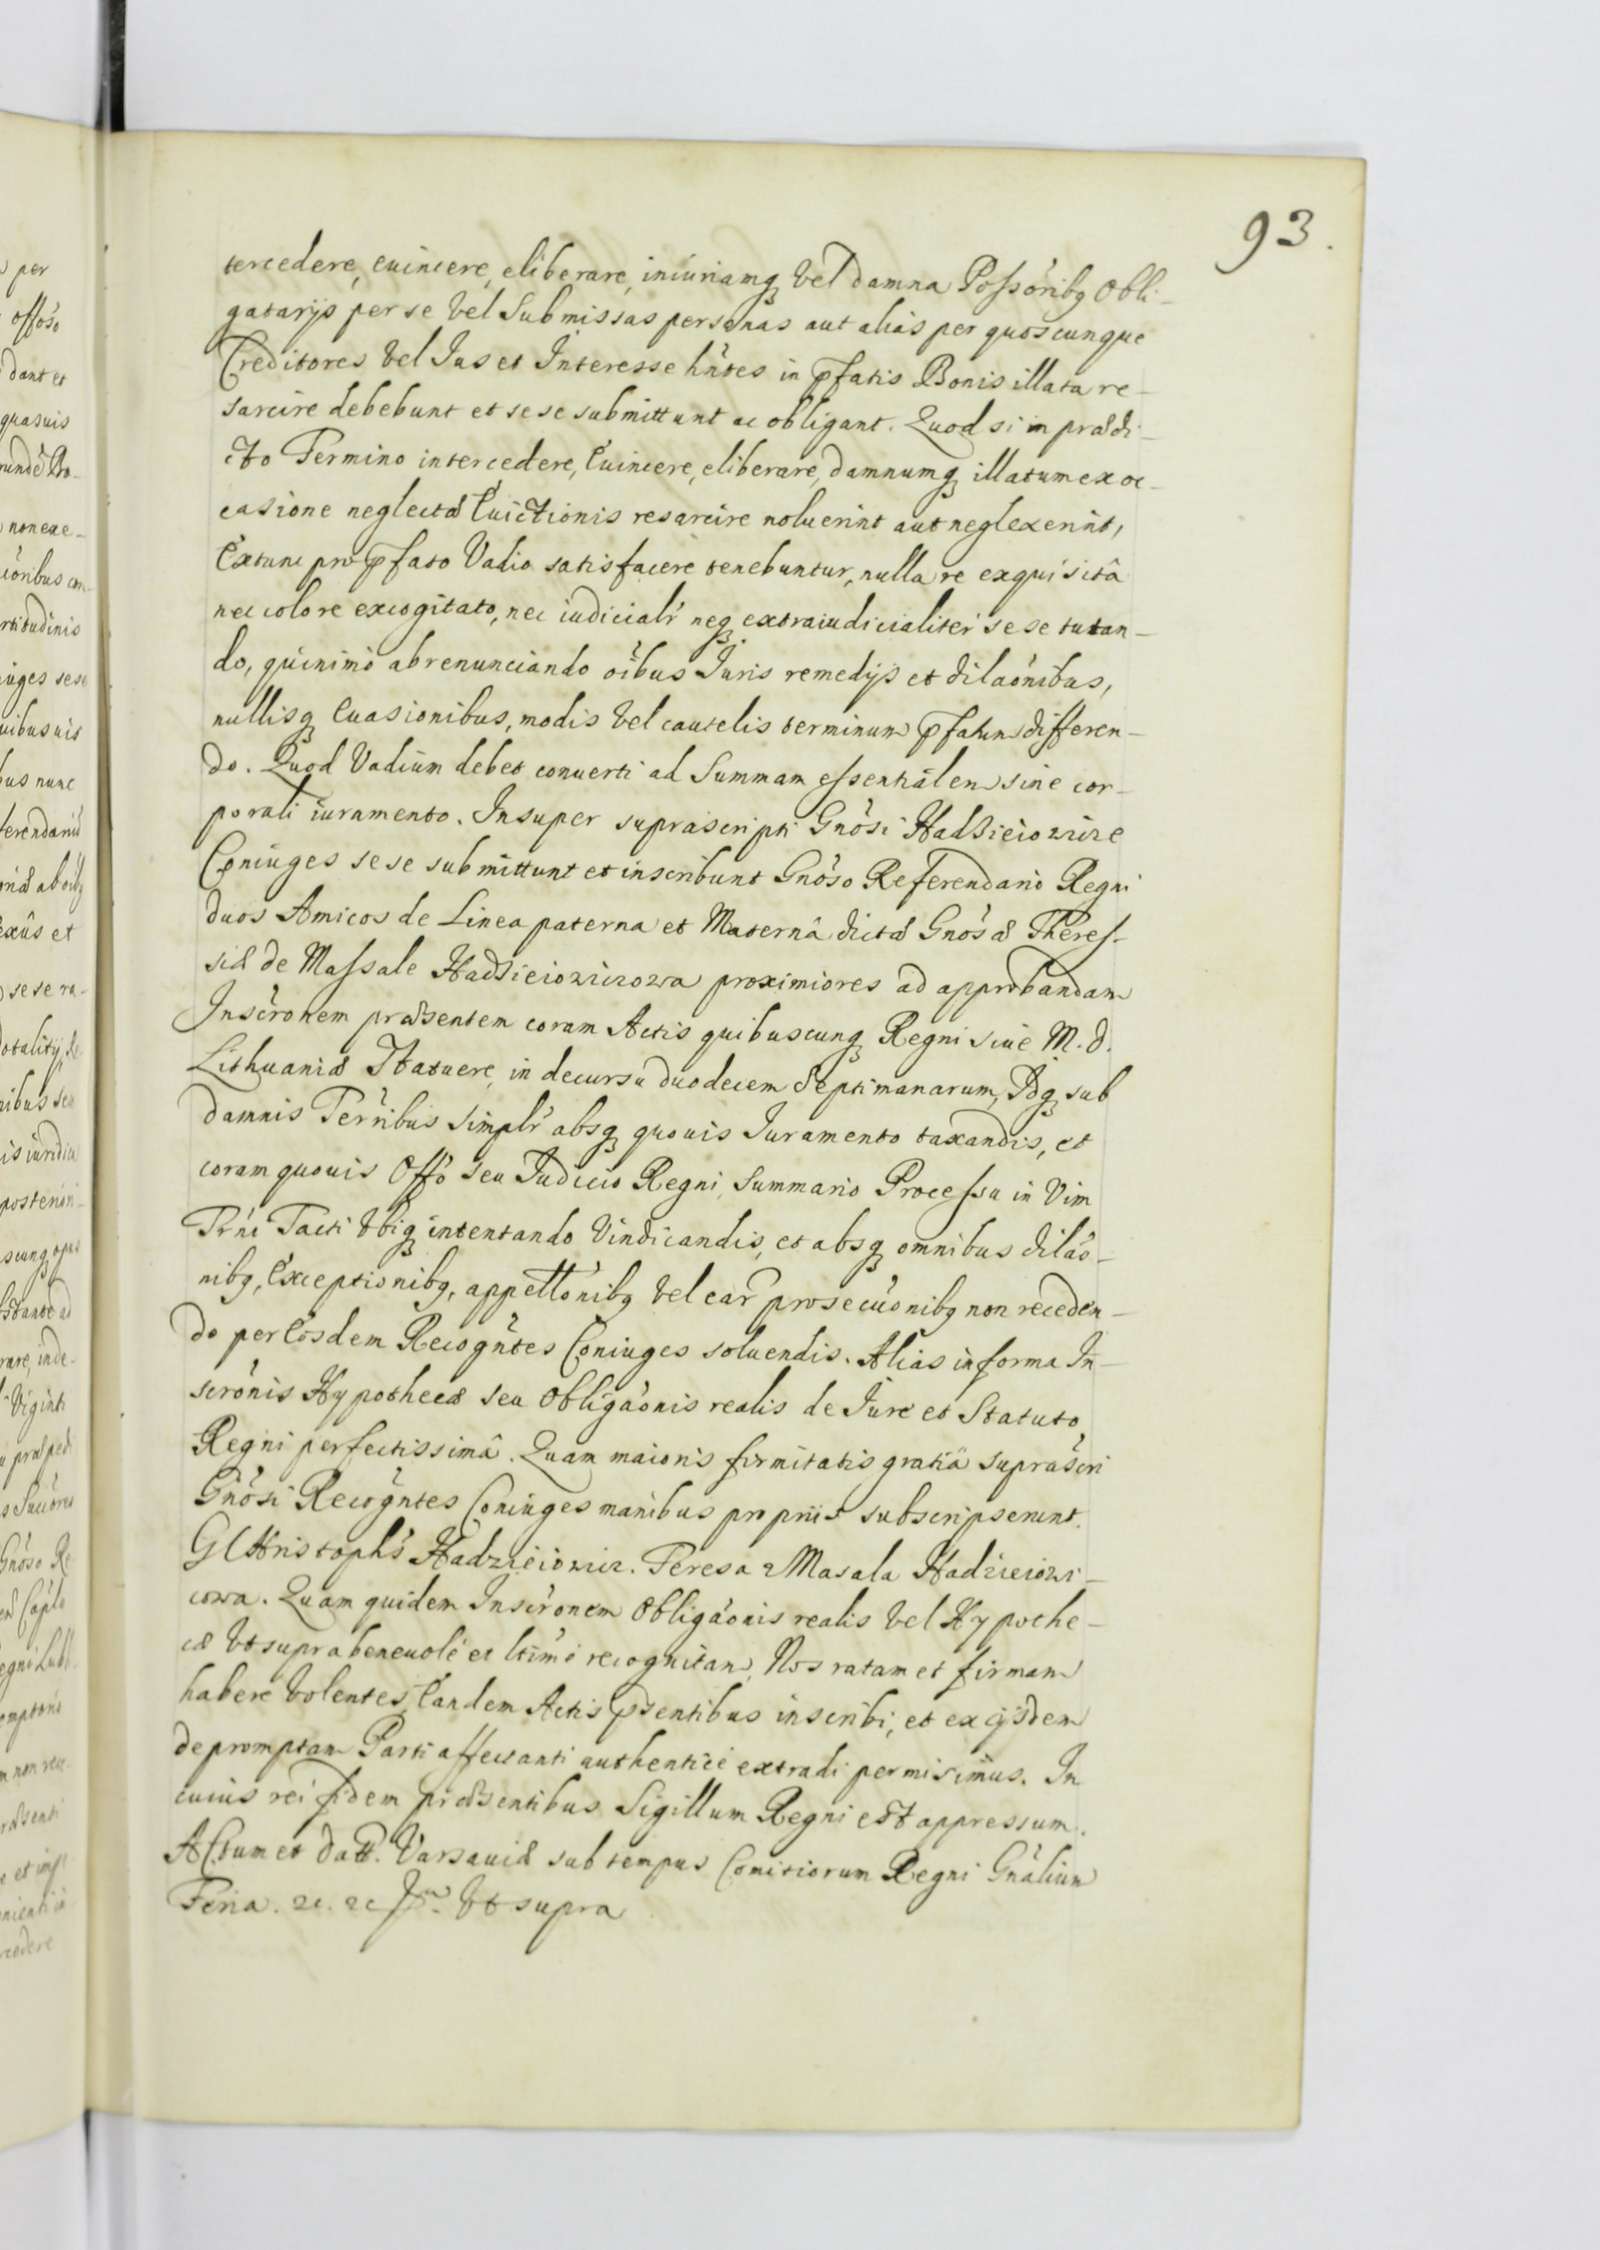 93.
tercedere, euincere, eliberare, iniuriamq̨ vel damna Possõribq̨ Obli-
gatarijs per se vel Submissas personas aut alias per quoscunque
Creditores vel Ius et Interesse hñtes in p̃fatis Bonis illata re-
sarcire debebunt et sese submittunt ac obligant. Quod si in prædi-
cto Termino intercedere, Euincere, eliberare, damnumq̨ illatum ex oc-
casione neglectæ Euictionis resarcire noluerint aut neglexerint,
Extunc pro p̃fato Vadio satisfacere tenebuntur, nulla re exquisitâ
nec colore excogitato, nec iudicialr̃ neq̨ extraiudicialiter sese tutan-
do, quinimò abrenunciando oĩbus Juris remedijs et dilaõnibus,
nullisq̨ Euasionibus, modis vel cautelis terminum p̃fatum differen-
do. Quod Vadium debet conuerti ad Summam essentialem sine cor-
porali iuramento. Insuper suprascripti Gnõsi Hadzieiowicze
Coniuges sese submittunt et inscribunt Gnõso Referendario Regni
duos Amicos de Linea paterna et Maternâ dictæ Gnõsæ Theres-
siæ de Massale Hadzieiowiczowa proximiores ad approbandam
Inscrõnem præsentem coram Actis quibuscunq̨ Regni siue M. D.
Lithuaniæ Statuere, in decursu duodecem Septimanarum, Idq̨ sub
damnis Terr̃ibus simplr̃ absq̨ quouis Iuramento taxandis, et
coram quouis Offõ seu Iudicio Regni, Summario Processu in Vim
Prñi Pacti vbiq̨ intentando Vindicandis, et absq̨ omnibus dilaõ-
nibq̨, Exceptionibq̨, appellõnibq̨ vel ear̃ prosecũonibq̨ non receden-
do per Eosdem Recogñtes Coniuges soluendis. Alias in forma In-
scrõnis Hypothecæ seu Obligãonis realis de Jure et Statuto
Regni perfectissimâ. Quam maioris firmitatis gratiâ suprascr̃i
Gnõsi Recogñtes Coniuges manibus proprijs subscripserunt.
Christoph̃s Hadzieiowicz. Teresa z Masala Hadzieiowi-
cowa. Quam quidem Inscrõnem Obligãonis realis vel Hypothe-
cæ vt supra beneuolè et ltĩmè recognitam, Nos ratam et firmam
habere volentes, Eandem Actis p̃sentibus inscribi, et ex ijsdem
depromptam Parti affectanti authenticè extradi permisimus. In
cuius rei fidem præsentibus Sigillum Regni est appressum.
Actum et datt. Varsauiæ sub tempus Comitiorum Regni Gnãlium
Feria. 2c. 2c vt supra